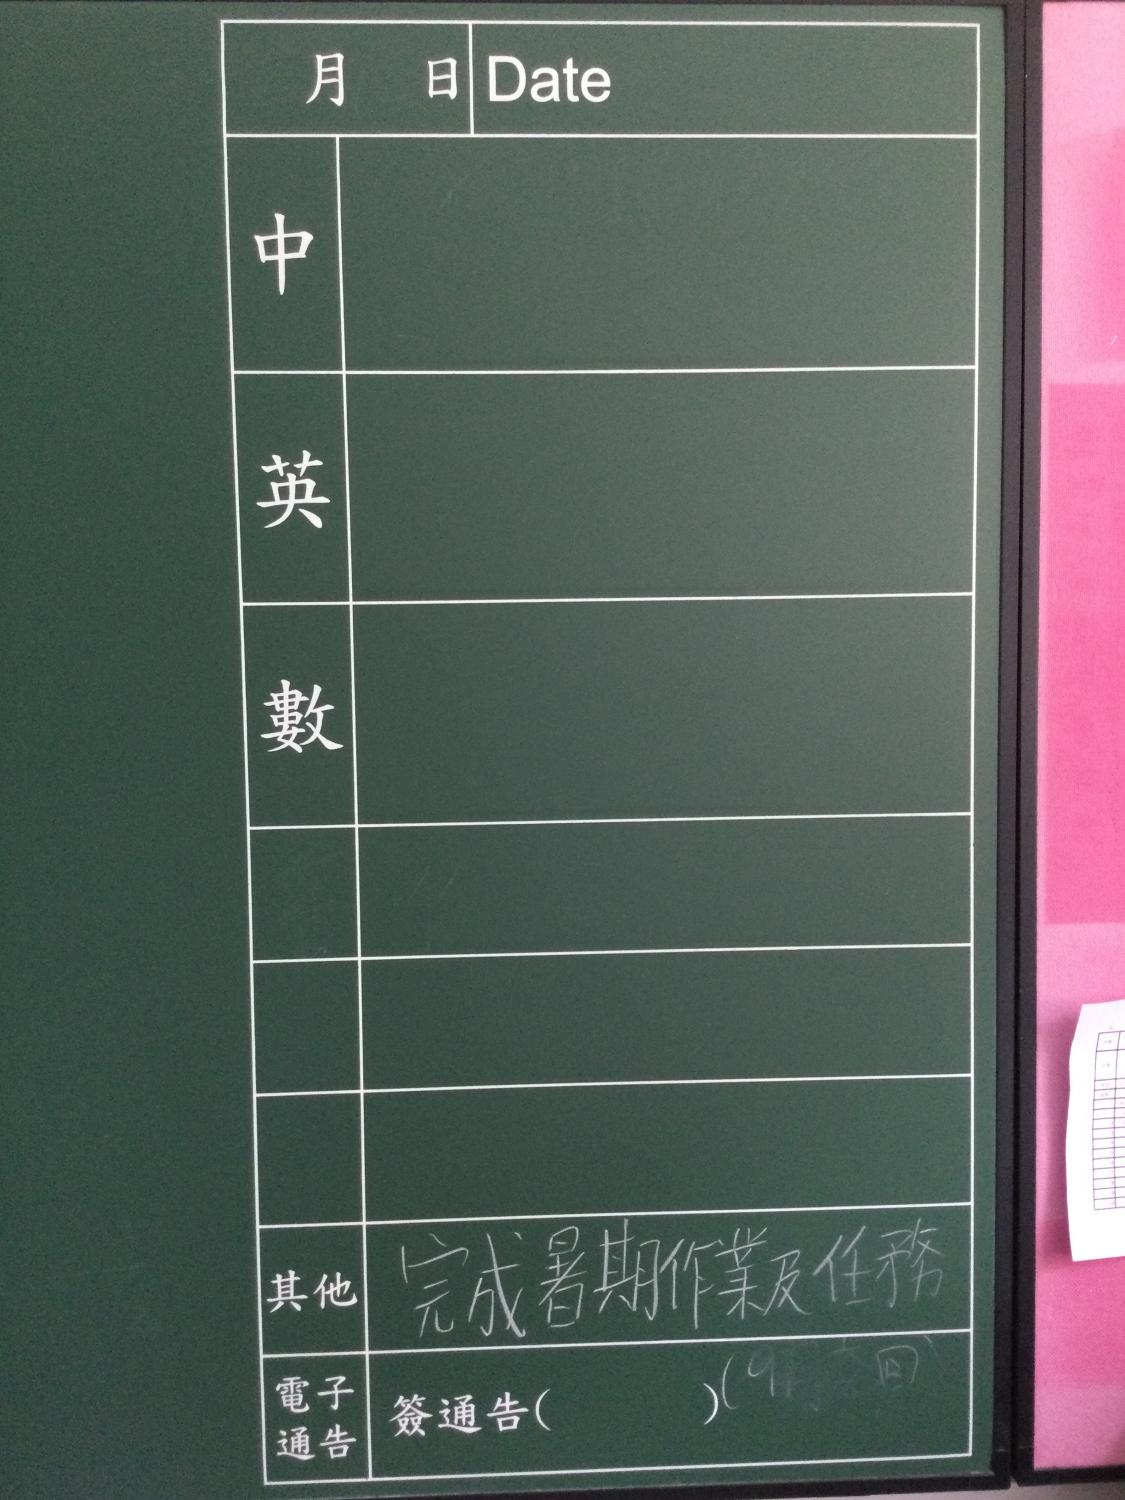 月 日 Date
中
英
數
其他 完成暑期作業及任務
電子
通告
簽通告( )